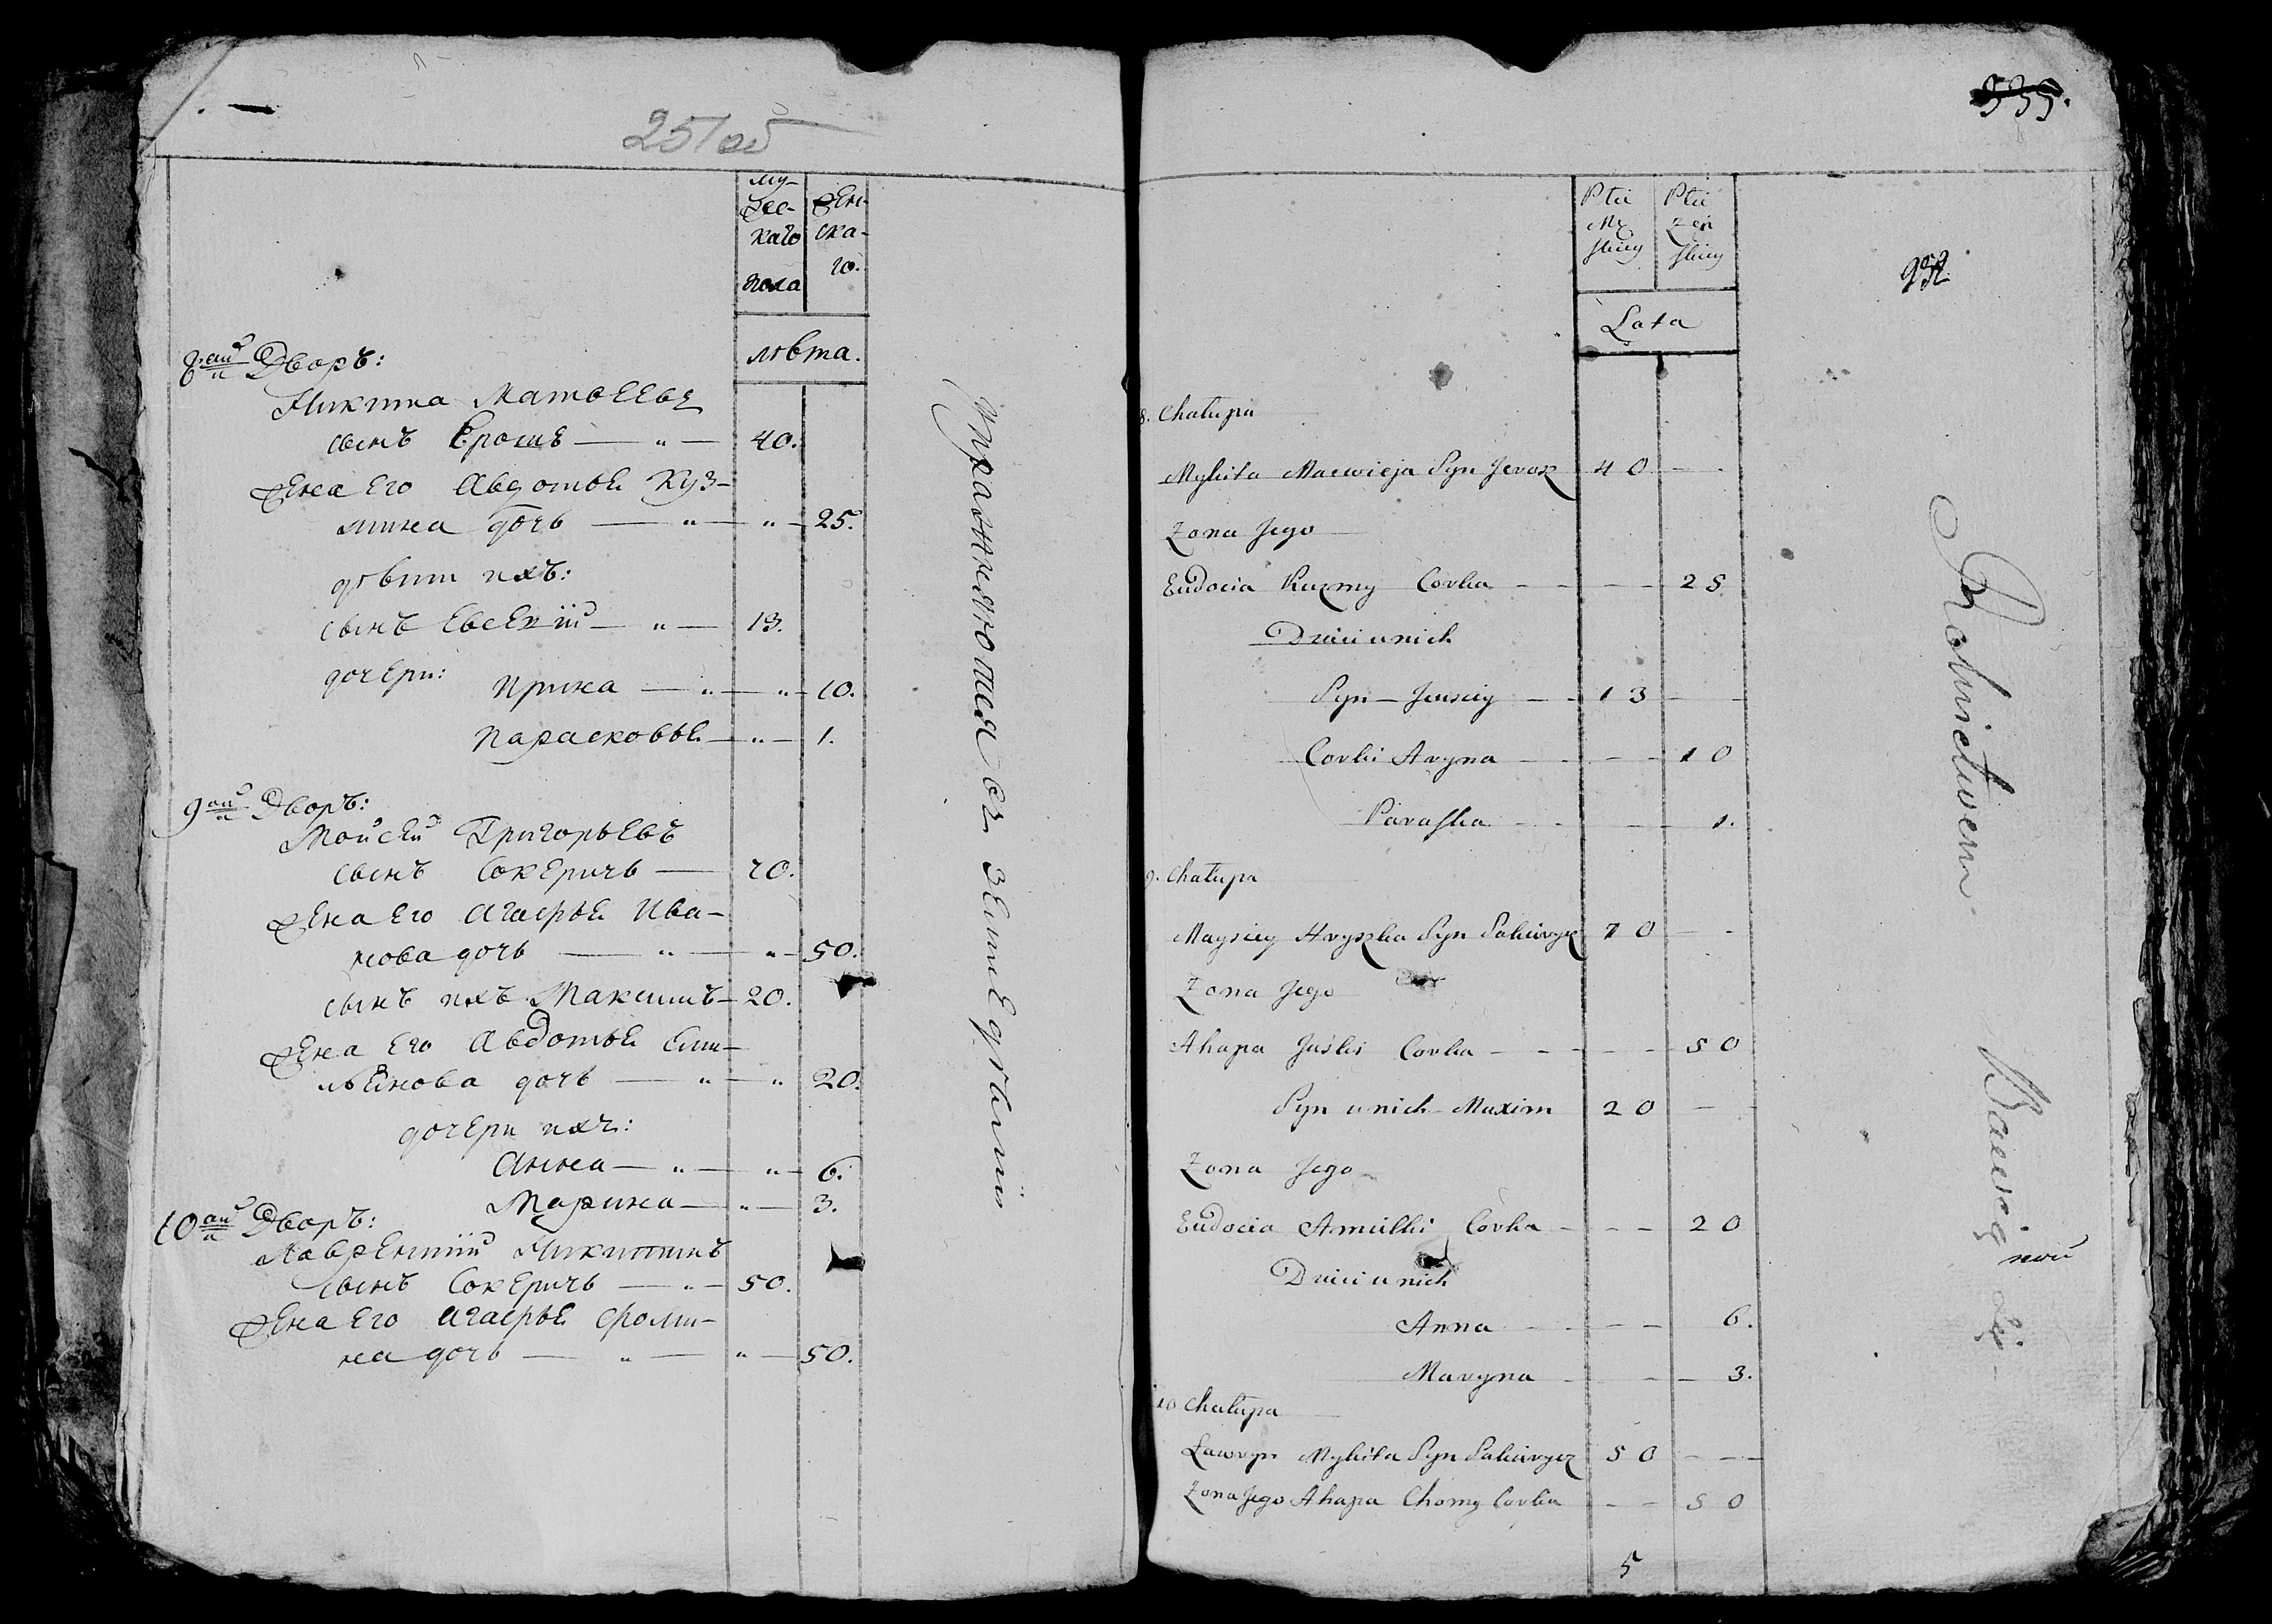 251об
му-
жес-
каго
пола
жен-
ска-
го.
лѣта.
8ой Дворъ:
Никита Матвеевъ
сынъ Ерошъ — „ — 40.
жена его Авдотья Куз-
мина дочь — „ — „ — 25.
дѣти ихъ:
сынъ Евсекій — „ — 13.
дочери: Ирина — „ — „ — 10.
Парасковья — „ — 1.
9ой Дворъ:
Мойсей Григорьевъ
сынъ Сокеричь — 70.
жена его Агафья Ива-
нова дочь — „ — „ — 50.
сынъ ихъ Максимъ — 20.
жена его Авдотья Еми-
льянова дочь — „ — „ 20.
дочери ихъ:
Анна — „ — „ — 6.
Марина — „ — 3.
10ой Дворъ:
Лаврентій Никитинъ
сынъ Сокеричь — „ — 50.
жена его Агафья Фоми-
на дочь — „ — „ — 50.
Упражняются въ земледѣліи
535.
Płci
Mę
skiey
Płci
Żeń
skiey
Lata
8. Chałupa
Mykita Macwieja Syn Jerosz 40 — -
Żona Jego
Eudocia Kuzmy Corka - - - - 25
Dzieci u nich
Syn — Jewsiey - - 13 - -
Corki Aryna - - - - 10
Paraska - - - 1.
9. Chałupa
Maysiey Hryszka Syn Sakierycz 70 - -
Żona Jego
Ahapa Jaśki Corka - - - - - 50
Syn u nich Maxim 20 -
Żona Jego
Eudocia Amiełki Corka - - - 20
Dzieci u nich
Anna - - - 6.
Maryna - - - 3.
10 Chałupa
Ławryn Mykita Syn Sakierycz 50 - - -
Żona Jego Ahapa Chomy Corka - - 50
5
Rolnictwem Bawią Się